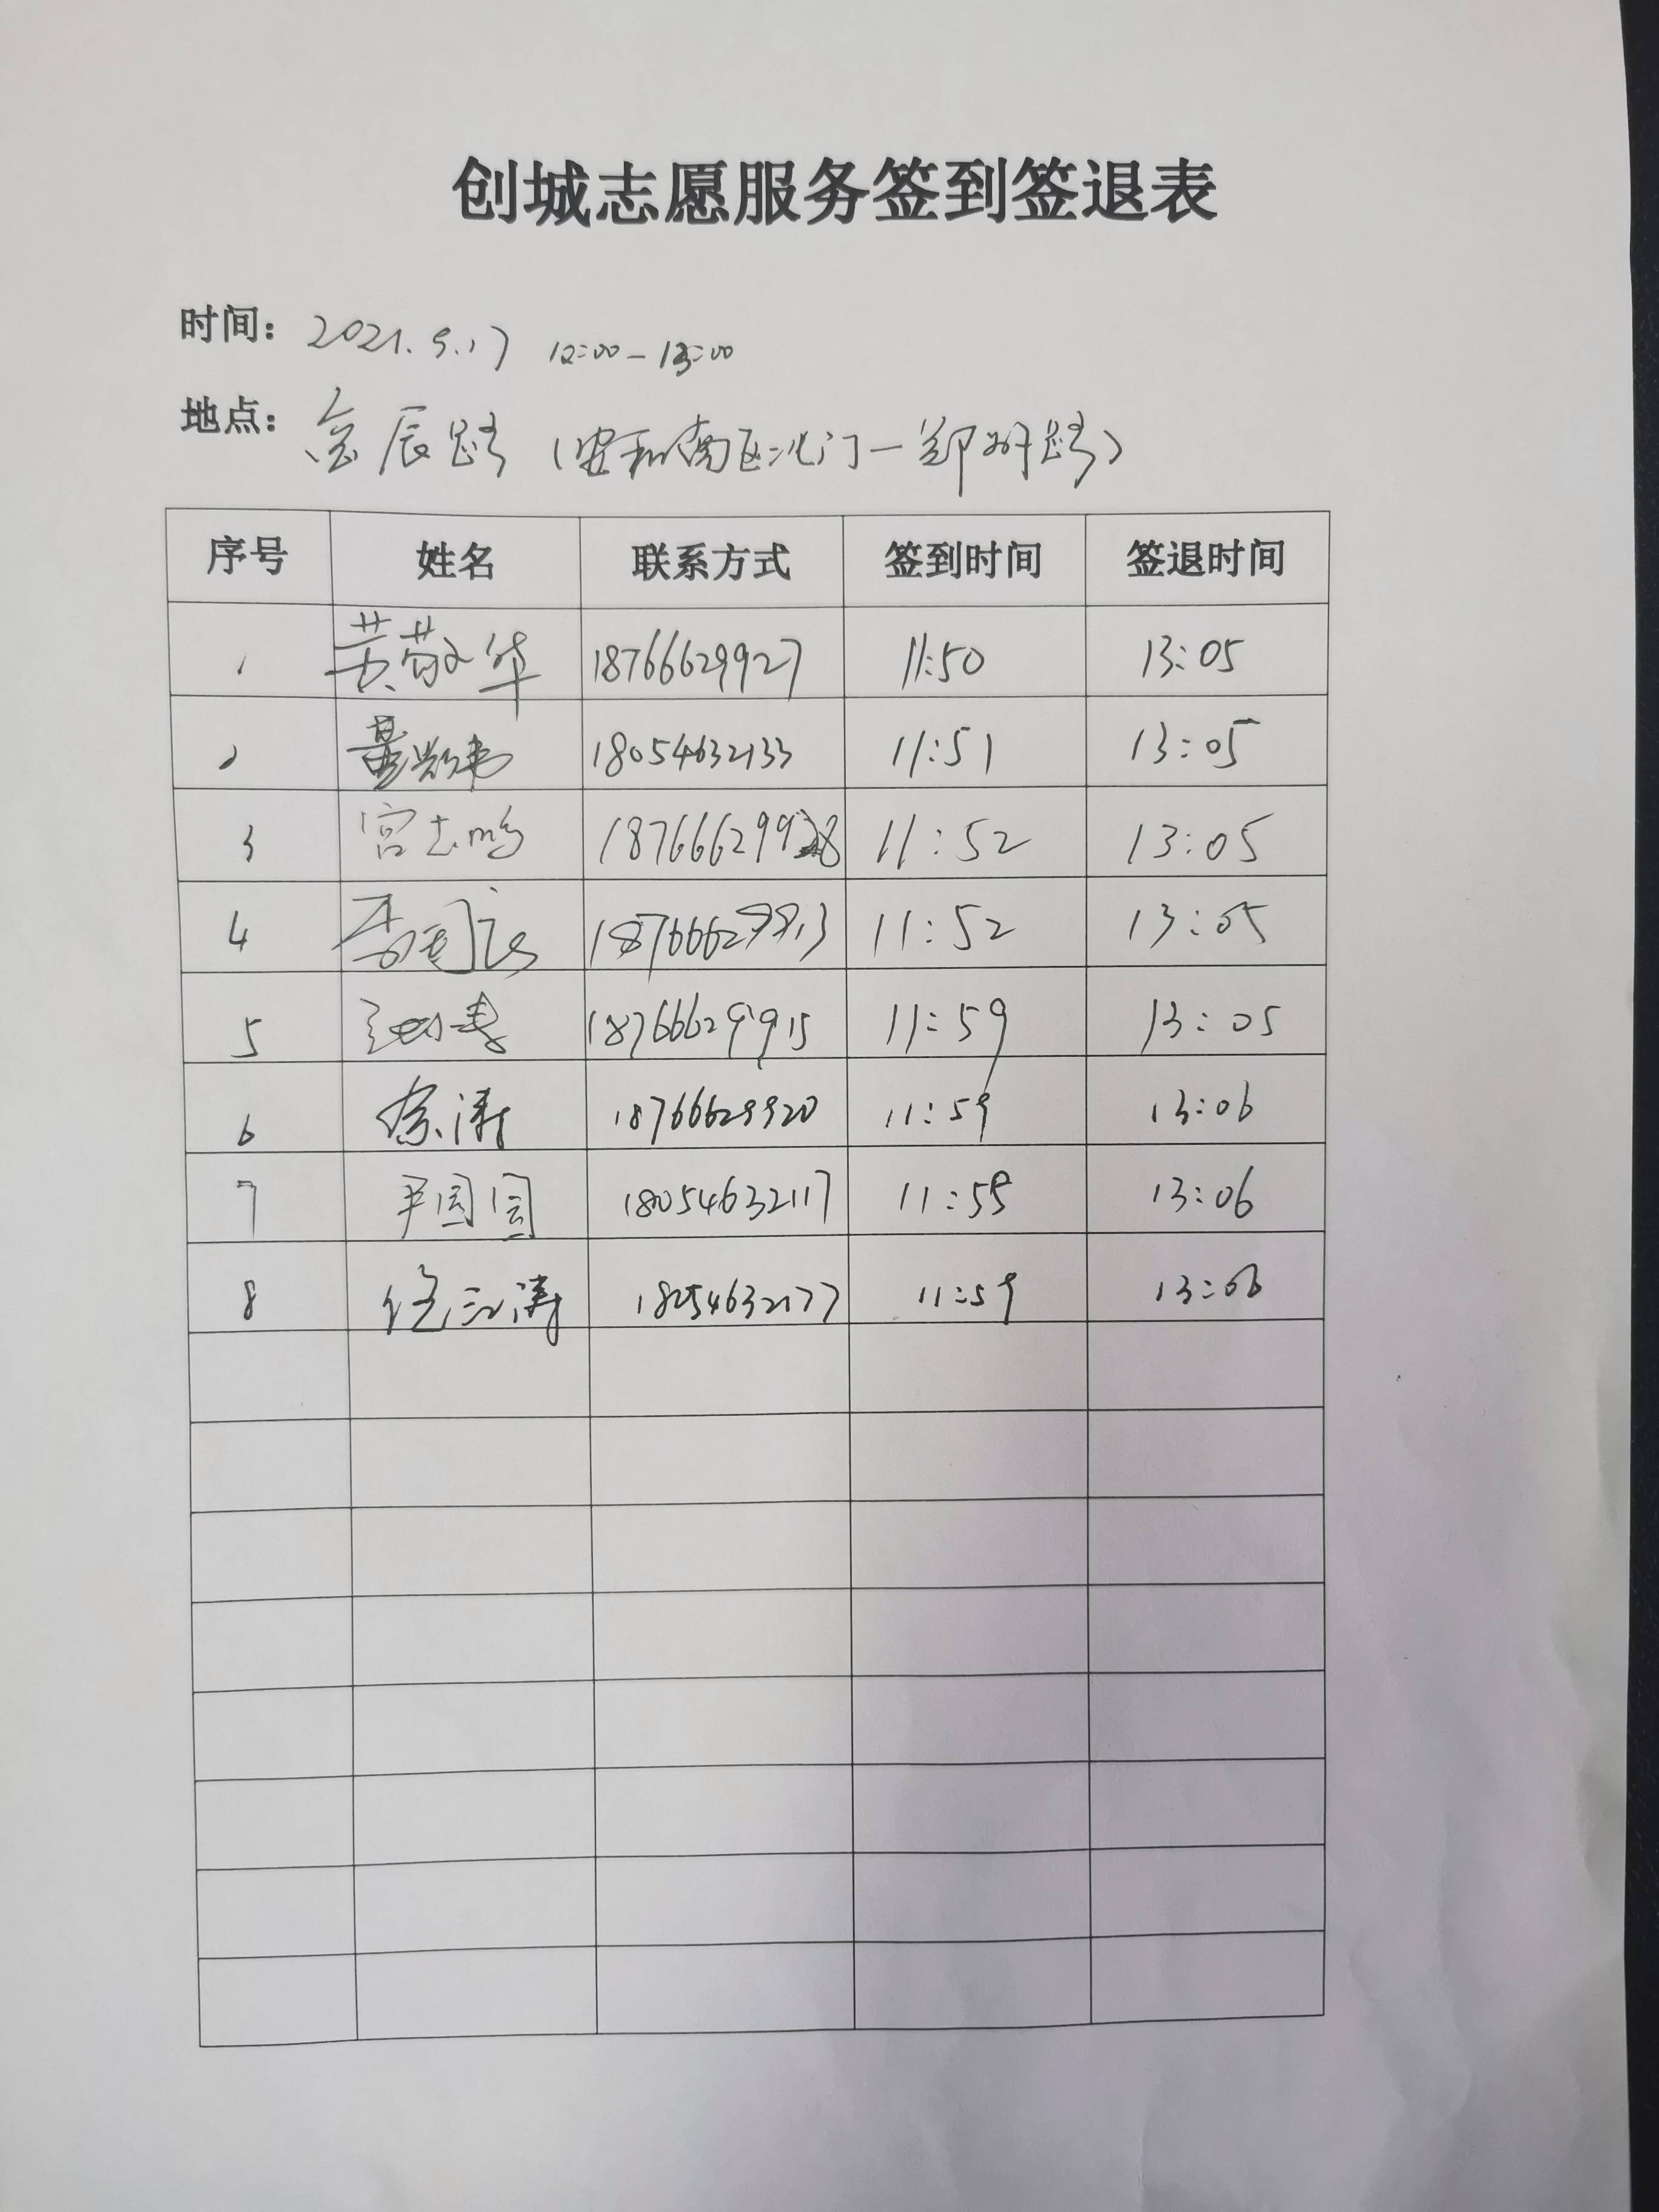 创城志愿服务签到签退表
时间: 2021.9.17 12:00-13:00
地点: 金辰路(安和南区北门-郑州路)
序号 姓名 联系方式 签到时间 签退时间
1 黄敬华 18766629927 11:50 13:05
2 18054632133 11:51 13:05
3 宫志鸣 18766629928 11:52 13:05
4 18766629913 11:52 13:05
5 18766629915 11:59 13:05
6 徐涛 18766629920 11:59 13:06
7 尹国国 18054632117 11:59 13:06
8 任江涛 18054632177 11:59 13:06